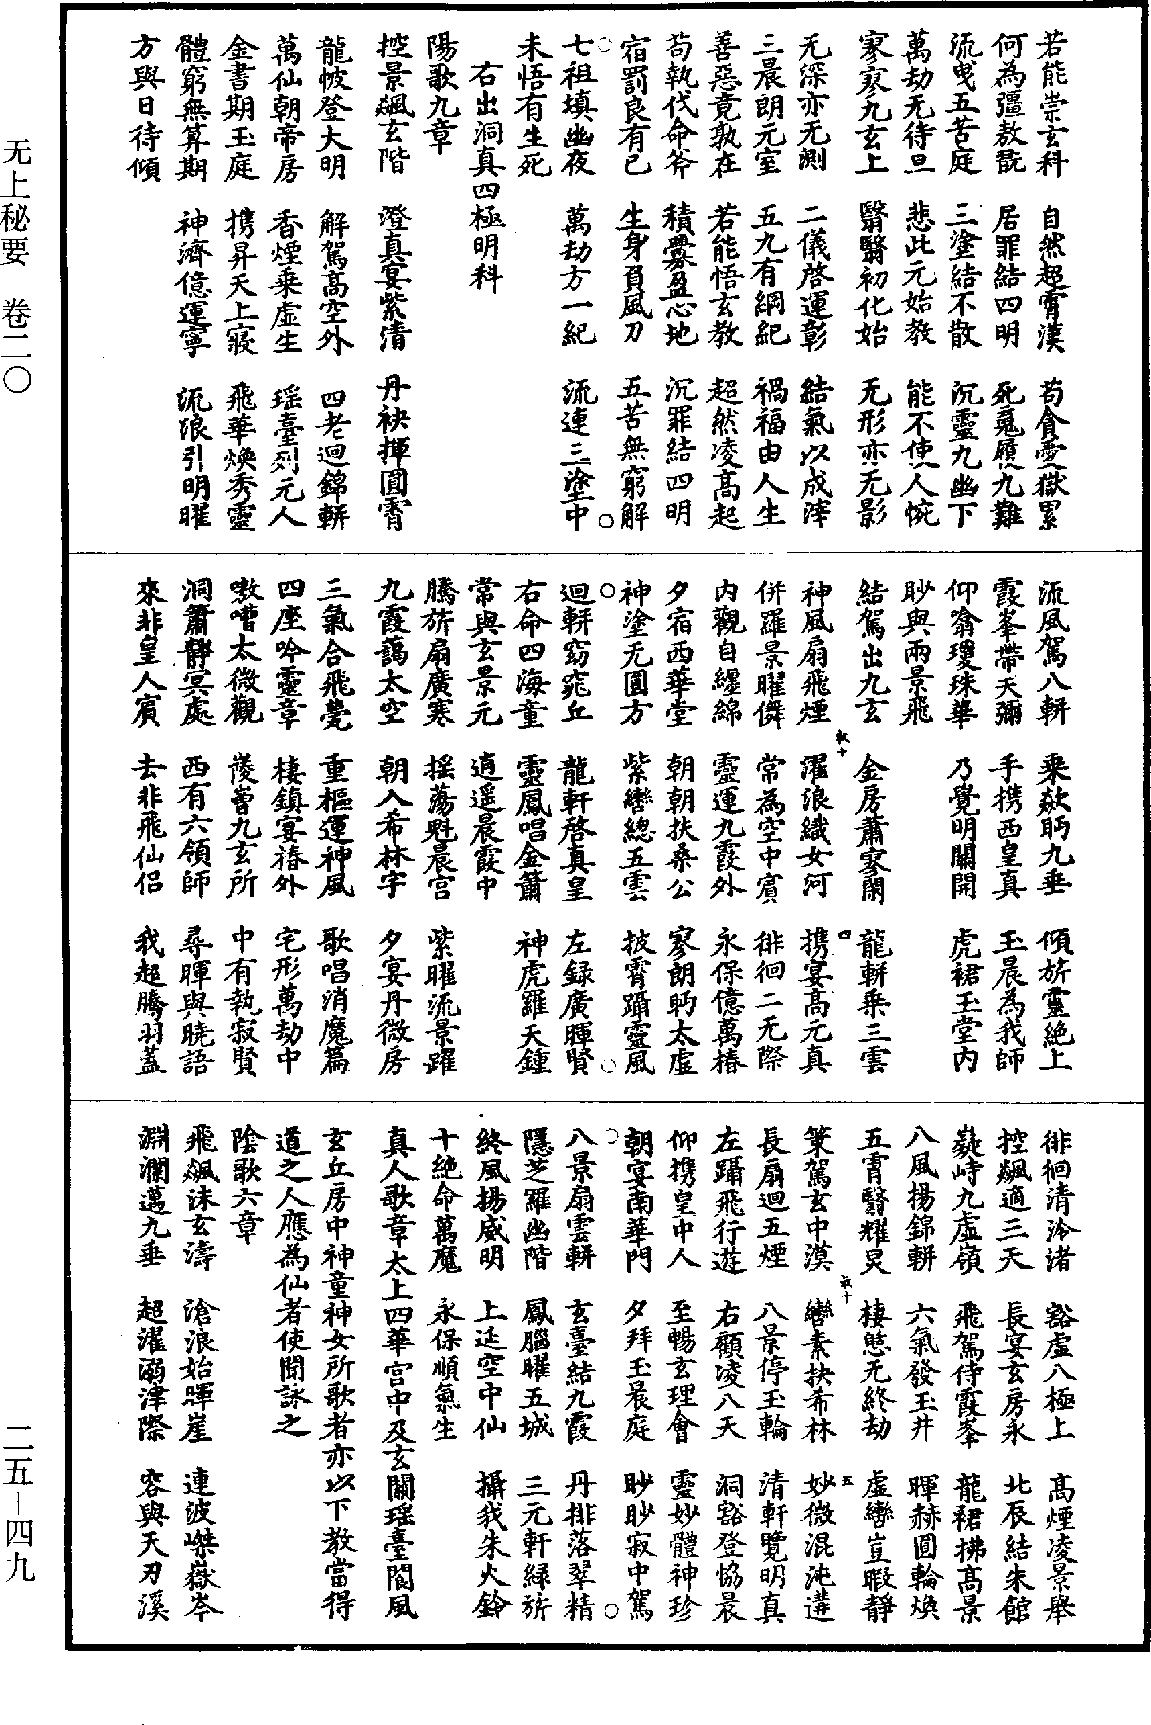 若能崇玄科　自然超霄漢　苟貪愛獄累
何為彊敖翫　居罪結四明　死魂履九難
流曵五苦庭　三塗結不散　沉靈九幽下
萬劫无待旦　悲此元始教　能不使人惋
寥寥九玄上　翳翳初化始　无形亦无影
无深亦无測　二儀啓運彰　結氣以成滓
三晨朗元室　五九有綱紀　禍福由人生
善惡竟孰在　若能悟玄教　超然凌高起
苟執伐命斧　積釁盈心地　沉罪結四明
宿罰良有已　生身負風刀　五苦無窮解
七祖填幽夜　萬劫方一紀　流連三塗中
未悟有生死
右出洞真四極明科
陽歌九章
控景飇玄階　澄真宴紫清　丹袂揮圓霄
龍帔登大明　解駕高空外　四老迴錦軿
萬仙朝帝房　香煙乘虛生　瑶臺列元人
金書期玉庭　携昇天上寢　飛華煥秀靈
體窮無算期　神濟億運寧　流浪引明曜
方與日待傾
流風駕八軿　乘欻眄九垂　傾旂靈絶上
霞峯帶天彌　手携西皇真　玉晨為我師
仰翕瓊珠華　乃覺明關開　虎裙玉堂内
眇與兩景飛
結駕出九玄　金房蕭寥閑　龍軿乘三雲
神風扇飛煙　濯浪織女河　携宴高元真
併羅景曜儔　常為空中賓　徘徊二无際
内觀自纏綿　靈運九霞外　永保億萬椿
夕宿西華堂　朝朝扶桑公　寥朗眄太虛
神塗无圓方　紫巒總五雲　披霄躡靈風
迴軿窈窕丘　龍軒啓真皇　左録廣暉賢
右命四海童　靈鳳唱金簫　神虎羅天鍾
常與玄景元　逍遥晨霞中
騰旂扇廣寒　摇蕩尅晨宫　紫曜流景躍
九霞藹太空　朝入希林宇　夕宴丹微房
三氣合飛甍　重樞運神風　歌唱消魔篇
四座吟靈章　棲鎮宴椿外　宅形萬劫中
嗷嘈太微觀　蔆蕾九玄所　中有執寂賢
洞簫靜冥處　西有六領師　尋暉與曉語
來非皇人賓　去非飛仙侣　我超騰羽蓋
徘徊清泠渚　豁虛八極上　高煙凌景舉
控飇適三天　長宴玄房永　北辰結朱館
嶷峙九虛嶺　飛駕待霞峯　龍裙拂高景
八風揚錦軿　六氣發玉井　暉赫圓輪煥
五霄翳耀炅　棲憩无終劫　虛巒豈暇靜
策駕玄中漠　轡素扶希林　妙微混沌遘
長扇迴五煙　八景停玉輪　清軒覽明真
左躡飛行遊　右顧凌八天　洞豁登協晨
仰携皇中人　至暢玄理會　靈妙體神珍
朝宴南華門　夕拜玉晨庭　眇眇寂中駕
八景扇雲軿　玄臺結九霞　丹排落翠精
隱芝羅幽階　鳳腦曜五城　三元軒緑旂
終風揚威明　上迋空中仙　攝我朱火鈴
十絶命萬魔　永保順氣生
真人歌章太上四華宫中及玄關瑶臺閬風
玄丘房中神童神女所歌者亦以下教當得
道之人應為仙者使聞詠之
陰歌六章
飛飇沫玄濤　滄浪始暉崖　連波嶫嶽岑
淵瀾邁九垂　超濯溺津際　容與天刃溪
无上秘要　卷二〇
二五—四九